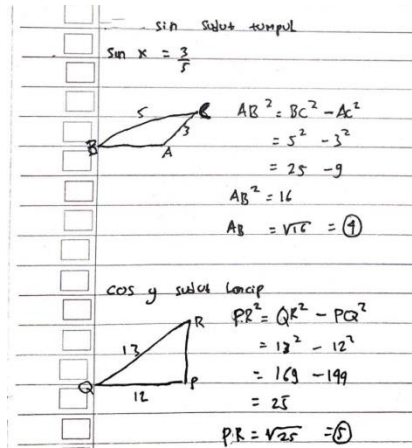 sin sudut tumpul
sin x = 3/5
5
3
B
A
C
AB² = BC² - AC²
= 5² - 3²
= 25 - 9
AB² = 16
AB = √16 = 4
cos y sudut lancip
13
12
Q
P
R
PR² = QR² - PQ²
= 13² - 12²
= 169 - 144
= 25
PR = √25 = 5